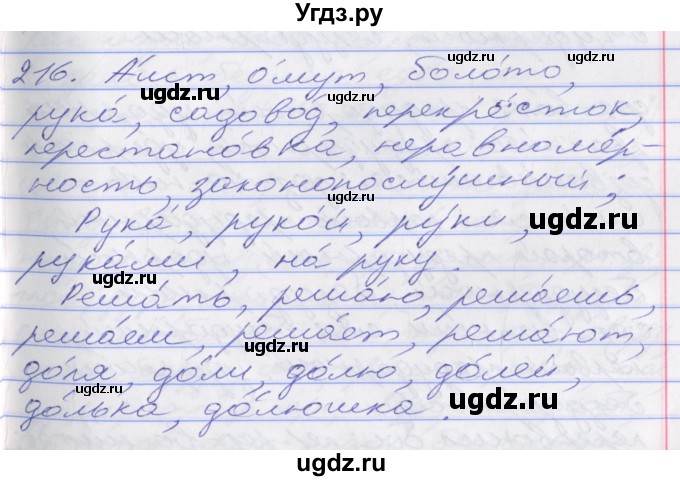 Угдз.ру
216. А́ист, о́мут, боло́то,
рука́, садово́д, перекрёсток,
перестано́вка, неравноме́р-
ность, законопослу́шный;
Рука́, руко́й, ру́ки,
рука́ми, на́ руку.
Реша́ть, реша́ю, реша́ешь,
реша́ем, реша́ет, реша́ют;
до́ля, до́ли, до́лю, до́лей,
до́лька, до́люшка.
ugdz.ru
ugdz.ru
ugdz.ru
ugdz.ru
ugdz.ru
ugdz.ru
ugdz.ru
ugdz.ru
ugdz.ru